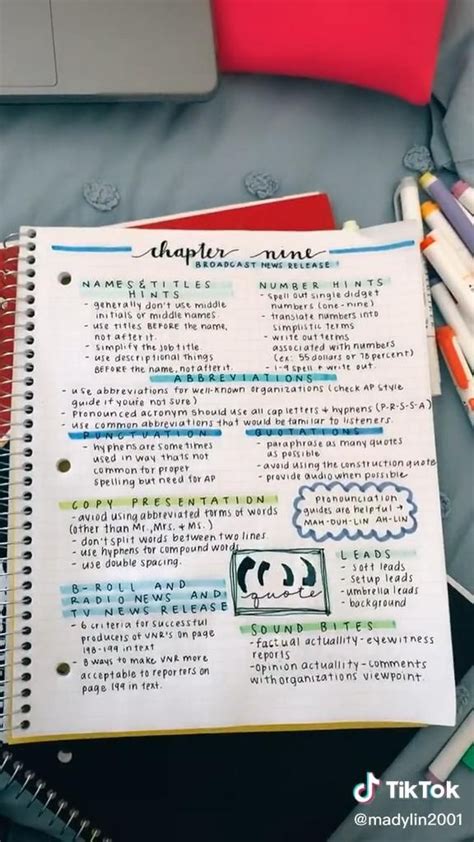 chapter nine
BROADCAST NEWS RELEASE
NAMES & TITLES
HINTS
- generally don't use middle
initials or middle names.
- use titles BEFORE the name,
not after it.
- simplify the job title.
- use descriptional things
BEFORE the name, not after it.
NUMBER HINTS
- spell out single didget
numbers (one-nine)
- translate numbers into
simplistic terms
- write out terms
associated with numbers
(ex: 55 dollars or 78 percent)
- 1-9 spell + write out.
ABBREVIATIONS
- use abbreviations for well-known organizations (check AP Style
guide if you're not sure)
- Pronounced acronym should use all cap letters & hyphens (P-R-S-S-A)
- use common abbreviations that would be familar to listeners.
PUNCTUATION
- hyphens are sometimes
used in way thats not
common for proper
spelling but need for AP
QUOTATIONS
- paraphrase as many quotes
as possible
- avoid using the construction quote
- provide audio when possible
COPY PRESENTATION
- aviod using abbreviated forms of words
(other than Mr., Mrs. & Ms.)
- don't split words between two lines.
- use hyphens for compound words
- use double spacing.
Pronounciation
guides are helpful →
MAH-DUH-LIN AH-LIN
quote
LEADS
- soft leads
- setup leads
- umbrella leads
- background
B-ROLL AND
RADIO NEWS AND
TV NEWS RELEASE
- 6 criteria for successful
producers of VNR's on page
198-199 in text
- 8 ways to make VNR more
acceptable to reporters on
page 199 in text.
SOUND BITES
- factual actuallity - eyewitness
reports
- opinion actuallity - comments
with organizations viewpoint.
TikTok
@madylin2001